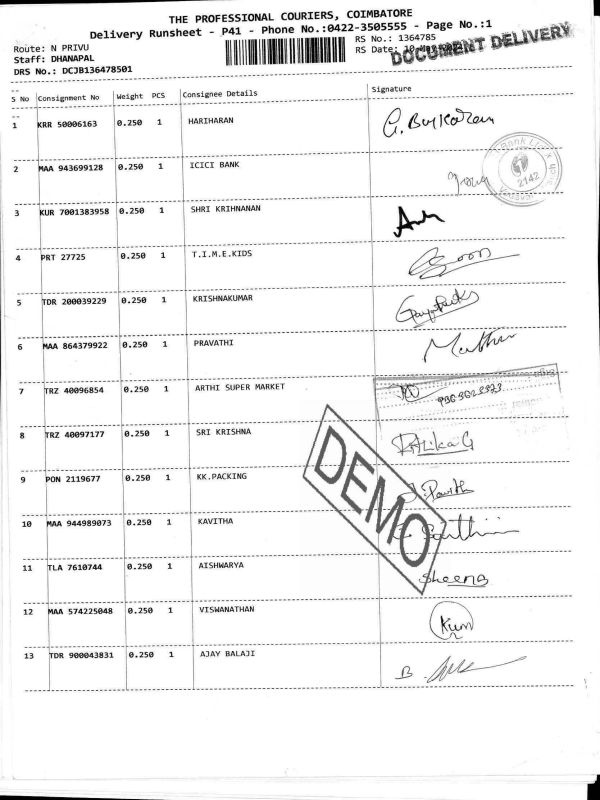 THE PROFESSIONAL COURIERS, COIMBATORE
Delivery Runsheet - P41 - Phone No.:0422-3505555 - Page No.:1
Route: N PRIVU
RS No.: 1364785
Staff: DHANAPAL
RS Date:
DOCUMENT DELIVERY
DRS No.: DCJB136478501
S No Consignment No Weight PCS Consignee Details Signature
1 KRR 50006163 0.250 1 HARIHARAN
2 MAA 943699128 0.250 1 ICICI BANK
2142
3 KUR 7001383958 0.250 1 SHRI KRIHNANAN
4 PRT 27725 0.250 1 T.I.M.E.KIDS
5 TDR 200039229 0.250 1 KRISHNAKUMAR
6 MAA 864379922 0.250 1 PRAVATHI
7 TRZ 40096854 0.250 1 ARTHI SUPER MARKET
8 TRZ 40097177 0.250 1 SRI KRISHNA
9 PON 2119677 0.250 1 KK.PACKING
10 MAA 944989073 0.250 1 KAVITHA
11 TLA 7610744 0.250 1 AISHWARYA Sheena
12 MAA 574225048 0.250 1 VISWANATHAN
13 TDR 900043831 0.250 1 AJAY BALAJI
DEMO